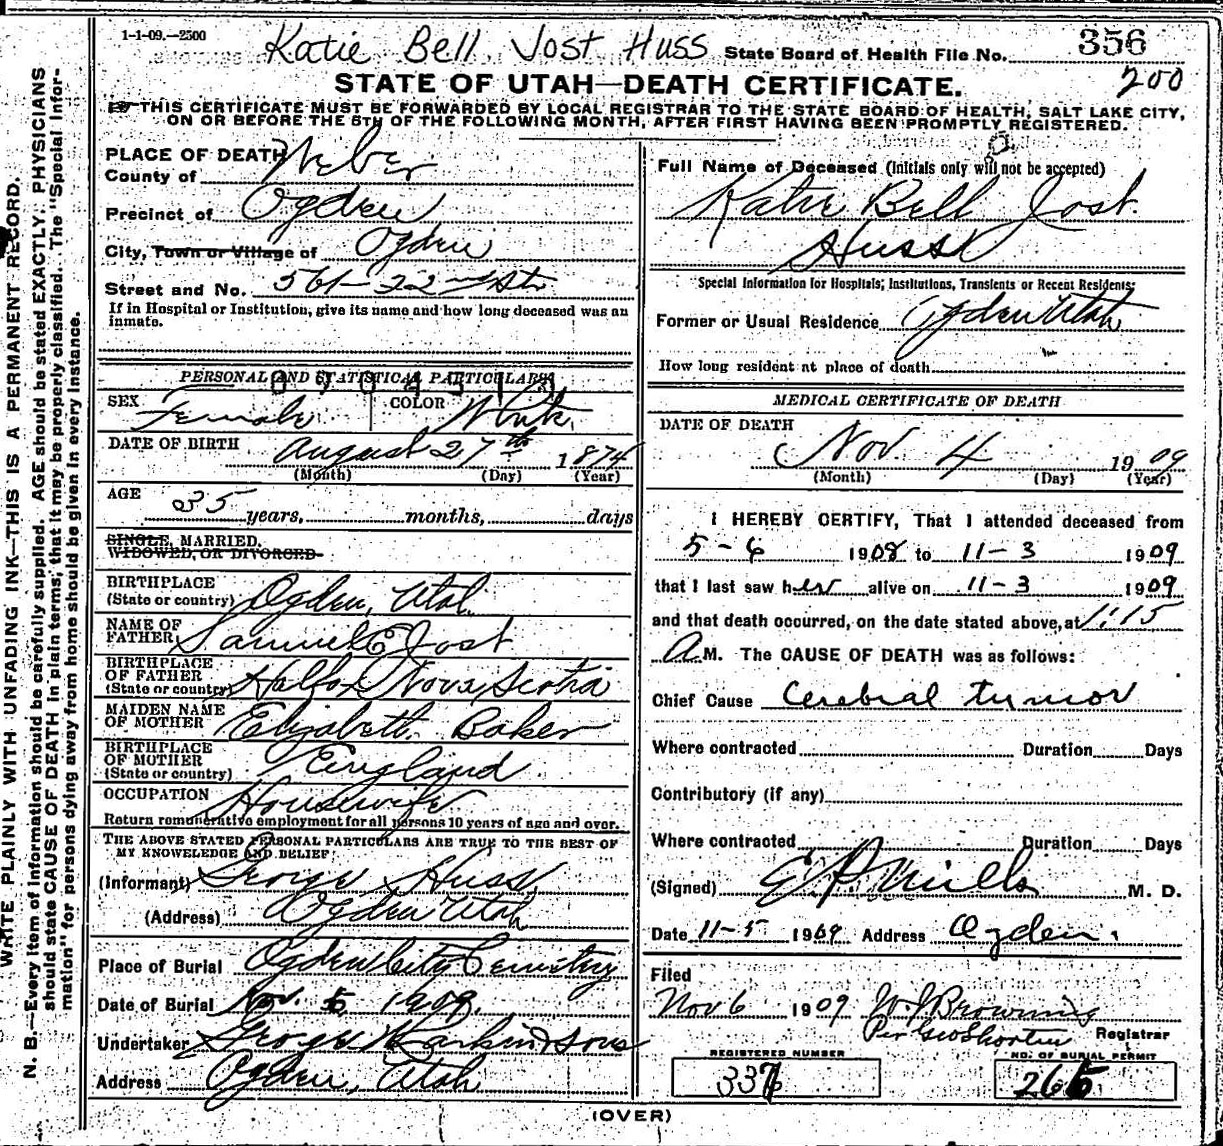 1-1-09.—2500
Katie Bell Jost Huss State Board of Health File No. 356
200
STATE OF UTAH—DEATH CERTIFICATE.
THIS CERTIFICATE MUST BE FORWARDED BY LOCAL REGISTRAR TO THE STATE BOARD OF HEALTH, SALT LAKE CITY,
ON OR BEFORE THE 5TH OF THE FOLLOWING MONTH, AFTER FIRST HAVING BEEN PROMPTLY REGISTERED.
WRITE PLAINLY WITH UNFADING INK—THIS IS A PERMANENT RECORD.
N. B.—Every item of information should be carefully supplied. AGE should be stated EXACTLY. PHYSICIANS
should state CAUSE OF DEATH in plain terms, that it may be properly classified. The "Special Infor-
mation" for persons dying away from home should be given in every instance.
PLACE OF DEATH
County of Weber
Precinct of Ogden
City, Town or Village of Ogden
Street and No. 561-22nd St
If in Hospital or Institution, give its name and how long deceased was an
inmate.
PERSONAL AND STATISTICAL PARTICULARS
SEX Female COLOR White
DATE OF BIRTH August 27th 1874
(Month) (Day) (Year)
AGE
35 years, months, days
SINGLE, MARRIED,
WIDOWED, OR DIVORCED
BIRTHPLACE
(State or country) Ogden, Utah
NAME OF
FATHER Samuel E Jost
BIRTHPLACE
OF FATHER
(State or country) Halfox Nova Scotia
MAIDEN NAME
OF MOTHER Elizabeth Baker
BIRTHPLACE
OF MOTHER
(State or country) England
OCCUPATION Housewife
Return remunerative employment for all persons 10 years of age and over.
THE ABOVE STATED PERSONAL PARTICULARS ARE TRUE TO THE BEST OF
MY KNOWLEDGE AND BELIEF
(Informant) George Huss
(Address) Ogden Utah
Place of Burial Ogden City Cemetery
Date of Burial Nov. 5, 1909.
Undertaker George W Larkin & Sons
Address Ogden, Utah
Full Name of Deceased (Initials only will not be accepted)
Katie Bell Jost
Huss
Special Information for Hospitals, Institutions, Transients or Recent Residents:
Former or Usual Residence Ogden Utah
How long resident at place of death
MEDICAL CERTIFICATE OF DEATH
DATE OF DEATH
Nov. 4 1909
(Month) (Day) (Year)
I HEREBY CERTIFY, That I attended deceased from
5-6 1908 to 11-3 1909
that I last saw her alive on 11-3 1909
and that death occurred, on the date stated above, at 1:15
A M. The CAUSE OF DEATH was as follows:
Chief Cause Cerebral tumor
Where contracted Duration Days
Contributory (if any)
Where contracted Duration Days
(Signed) E P Mills M. D.
Date 11-5 1909 Address Ogden.
Filed
Nov 6 1909 W J Browning
Per Geo Shorten Registrar
REGISTERED NUMBER
337
NO. OF BURIAL PERMIT
265
(OVER)